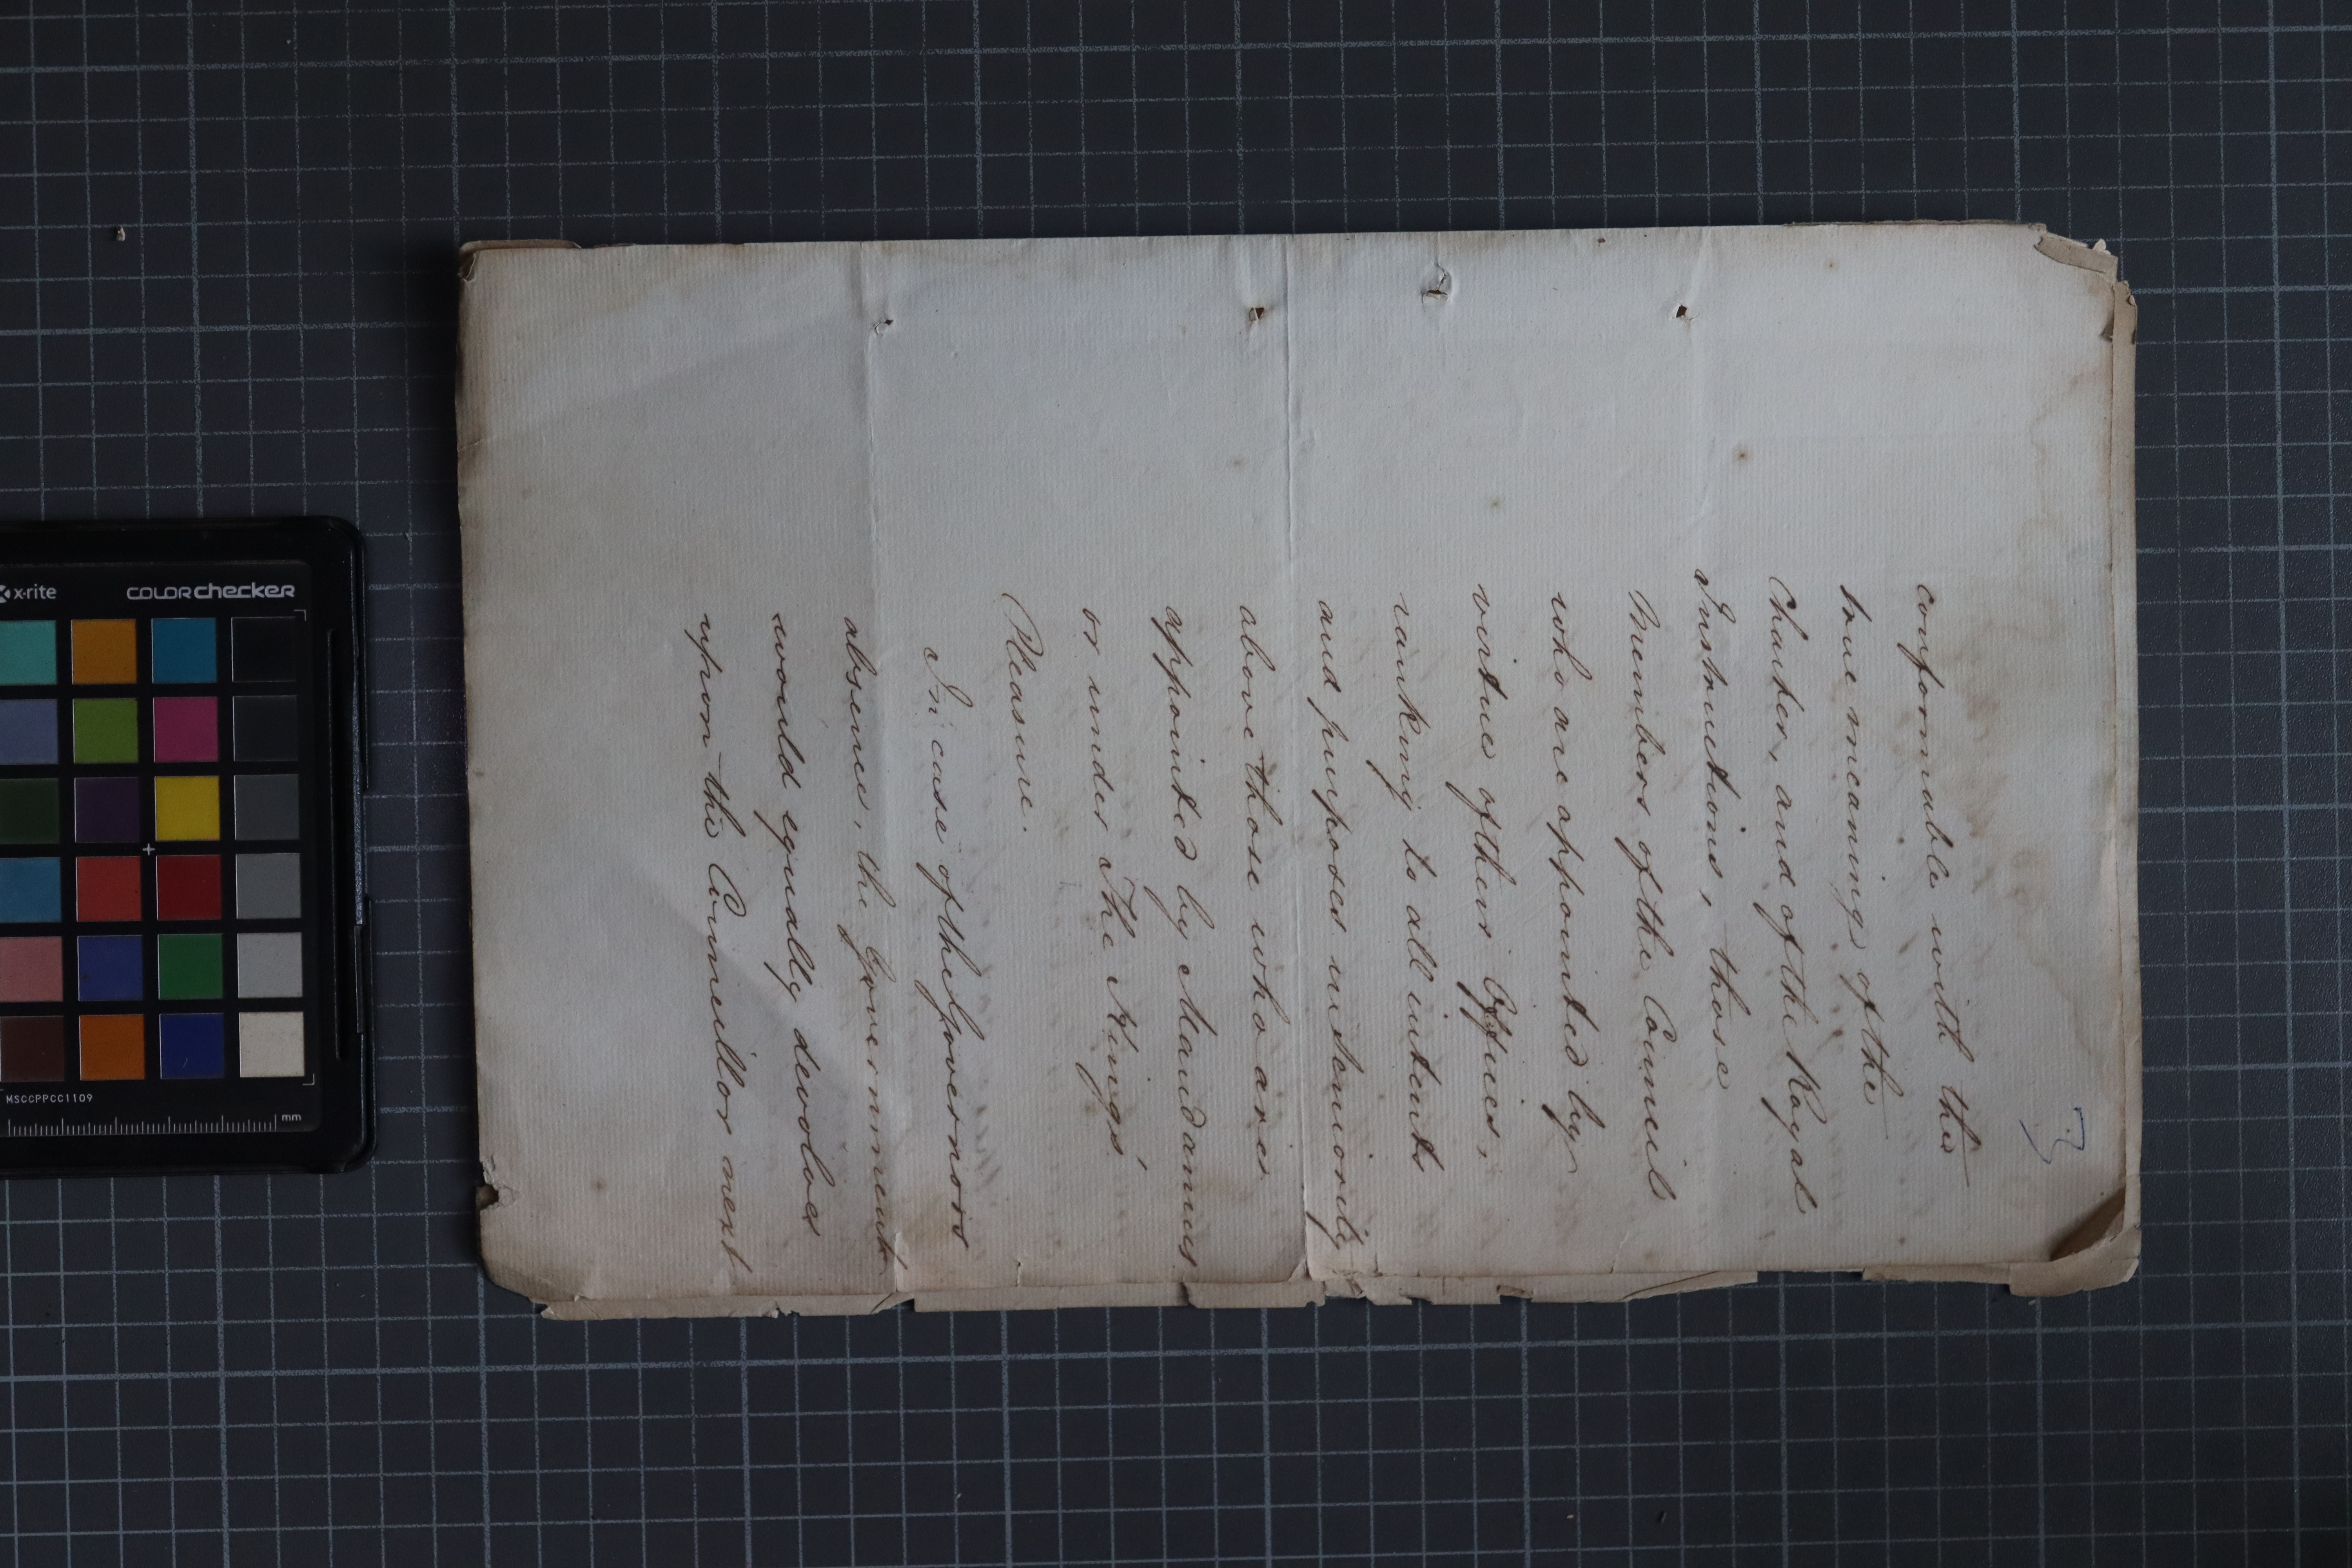 3
conformable with the
true meaning of the
Charter, and of the Royal
Instructions, those
Members of the Council
who are appointed by
virtue of their Offices,
ranking to all intents
and purposes in Seniority
above those who are
appointed by Mandamus
or under The King's
Pleasure.
In case of the Governors
absence, the Government
would equally devolve
upon the Councillor next
x-rite
colorchecker
MSCCPPCC1109
mm